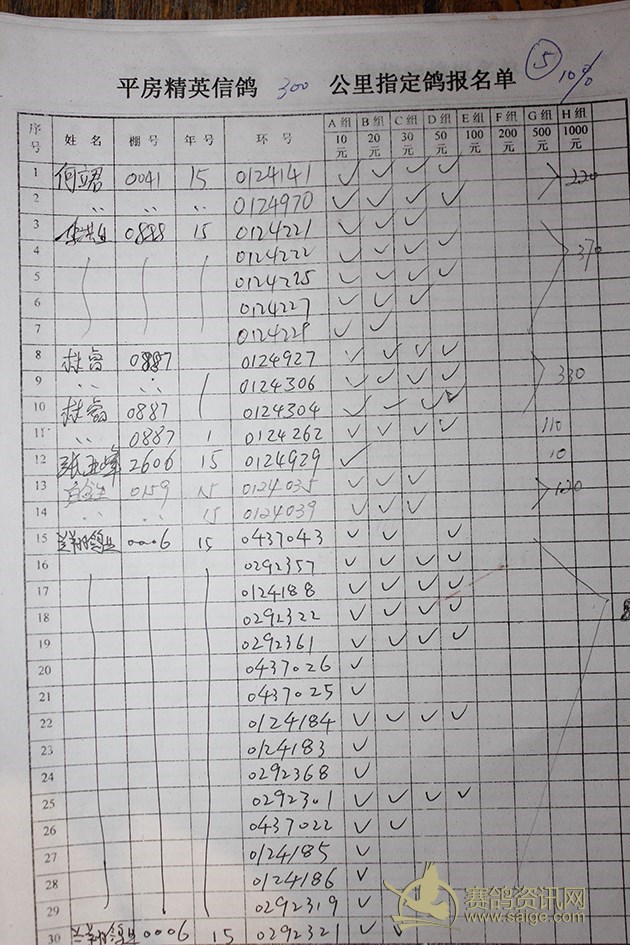 5
10%
平房精英信鸽 300 公里指定鸽报名单
序号 姓 名 棚 号 年 号 环 号 A 组 10 元 B 组 20 元 C 组 30 元 D 组 50 元 E 组 100 元 F 组 200 元 G 组 500 元 H 组 1000 元
1 何立君 0041 15 0124141 ✓ ✓ ✓ ✓ 220
2 〃 〃 〃 0124970 ✓ ✓ ✓ ✓
3 0888 15 0124221 ✓ ✓ ✓ 370
4 0124222 ✓ ✓ ✓ ✓
5 0124225 ✓ ✓ ✓ ✓
6 0124227 ✓ ✓ ✓
7 0124229 ✓ ✓
8 杜睿 0887 0124927 ✓ ✓ ✓ ✓
9 〃 〃 0124306 ✓ ✓ ✓ ✓ 330
10 杜睿 0887 0124304 ✓ ✓ ✓ ✓
11 〃 0887 0124262 ✓ ✓ ✓ ✓ 110
12 张亚峰 2606 15 0124929 ✓ 10
13 0159 15 0124035 ✓ ✓ ✓ 120
14 〃 〃 15 0124039 ✓ ✓ ✓
15 0006 15 0437043 ✓ ✓ ✓
16 0292357 ✓ ✓ ✓ ✓
17 0124188 ✓ ✓ ✓ ✓
18 0292322 ✓ ✓ ✓ ✓
19 0292361 ✓ ✓ ✓ ✓
20 0437026 ✓
21 0437025 ✓
22 0124184 ✓ ✓ ✓ ✓
23 0124183 ✓
24 0292368 ✓
25 0292301 ✓ ✓ ✓ ✓
26 0437022 ✓ ✓
27 0124185 ✓
28 0124186 ✓
29 0292319 ✓
30 0006 15 0292321 ✓ ✓
赛鸽资讯网
www.saige.com